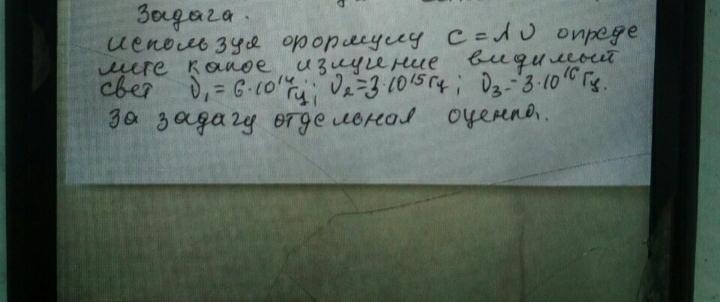 Задача.
используя формулу с = λυ опреде
лите какое излучение видимый
свет υ₁ = 6·10¹⁴ Гц; υ₂ = 3·10¹⁵ Гц; υ₃ = 3·10¹⁶ Гц.
За задачу отдельная оценка.